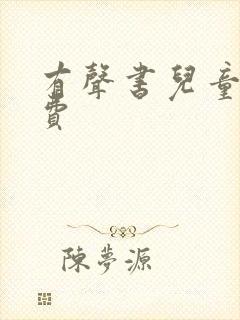 有聲書兒童
費
陳夢源